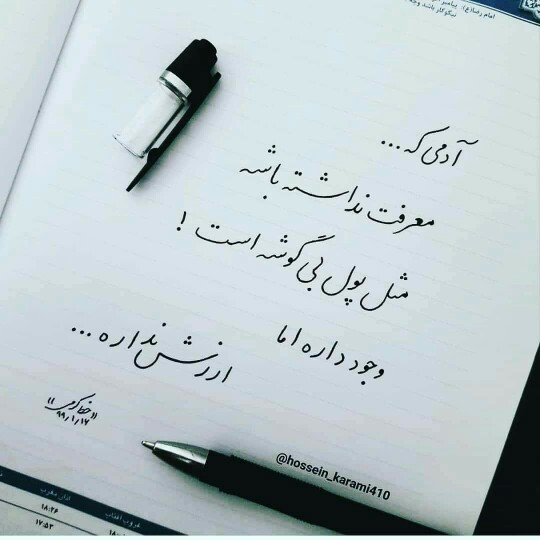 امام رضا(ع)
آدمی که ...
معرفت نداشته باشه
مثل پول بی گوشه است !
وجود داره اما
ارزش نداره ...
۹۹/۱/۱۷
@hossein_karami410
غروب آفتاب
اذان مغرب
۱۸:۲۶
۱۷:۵۳